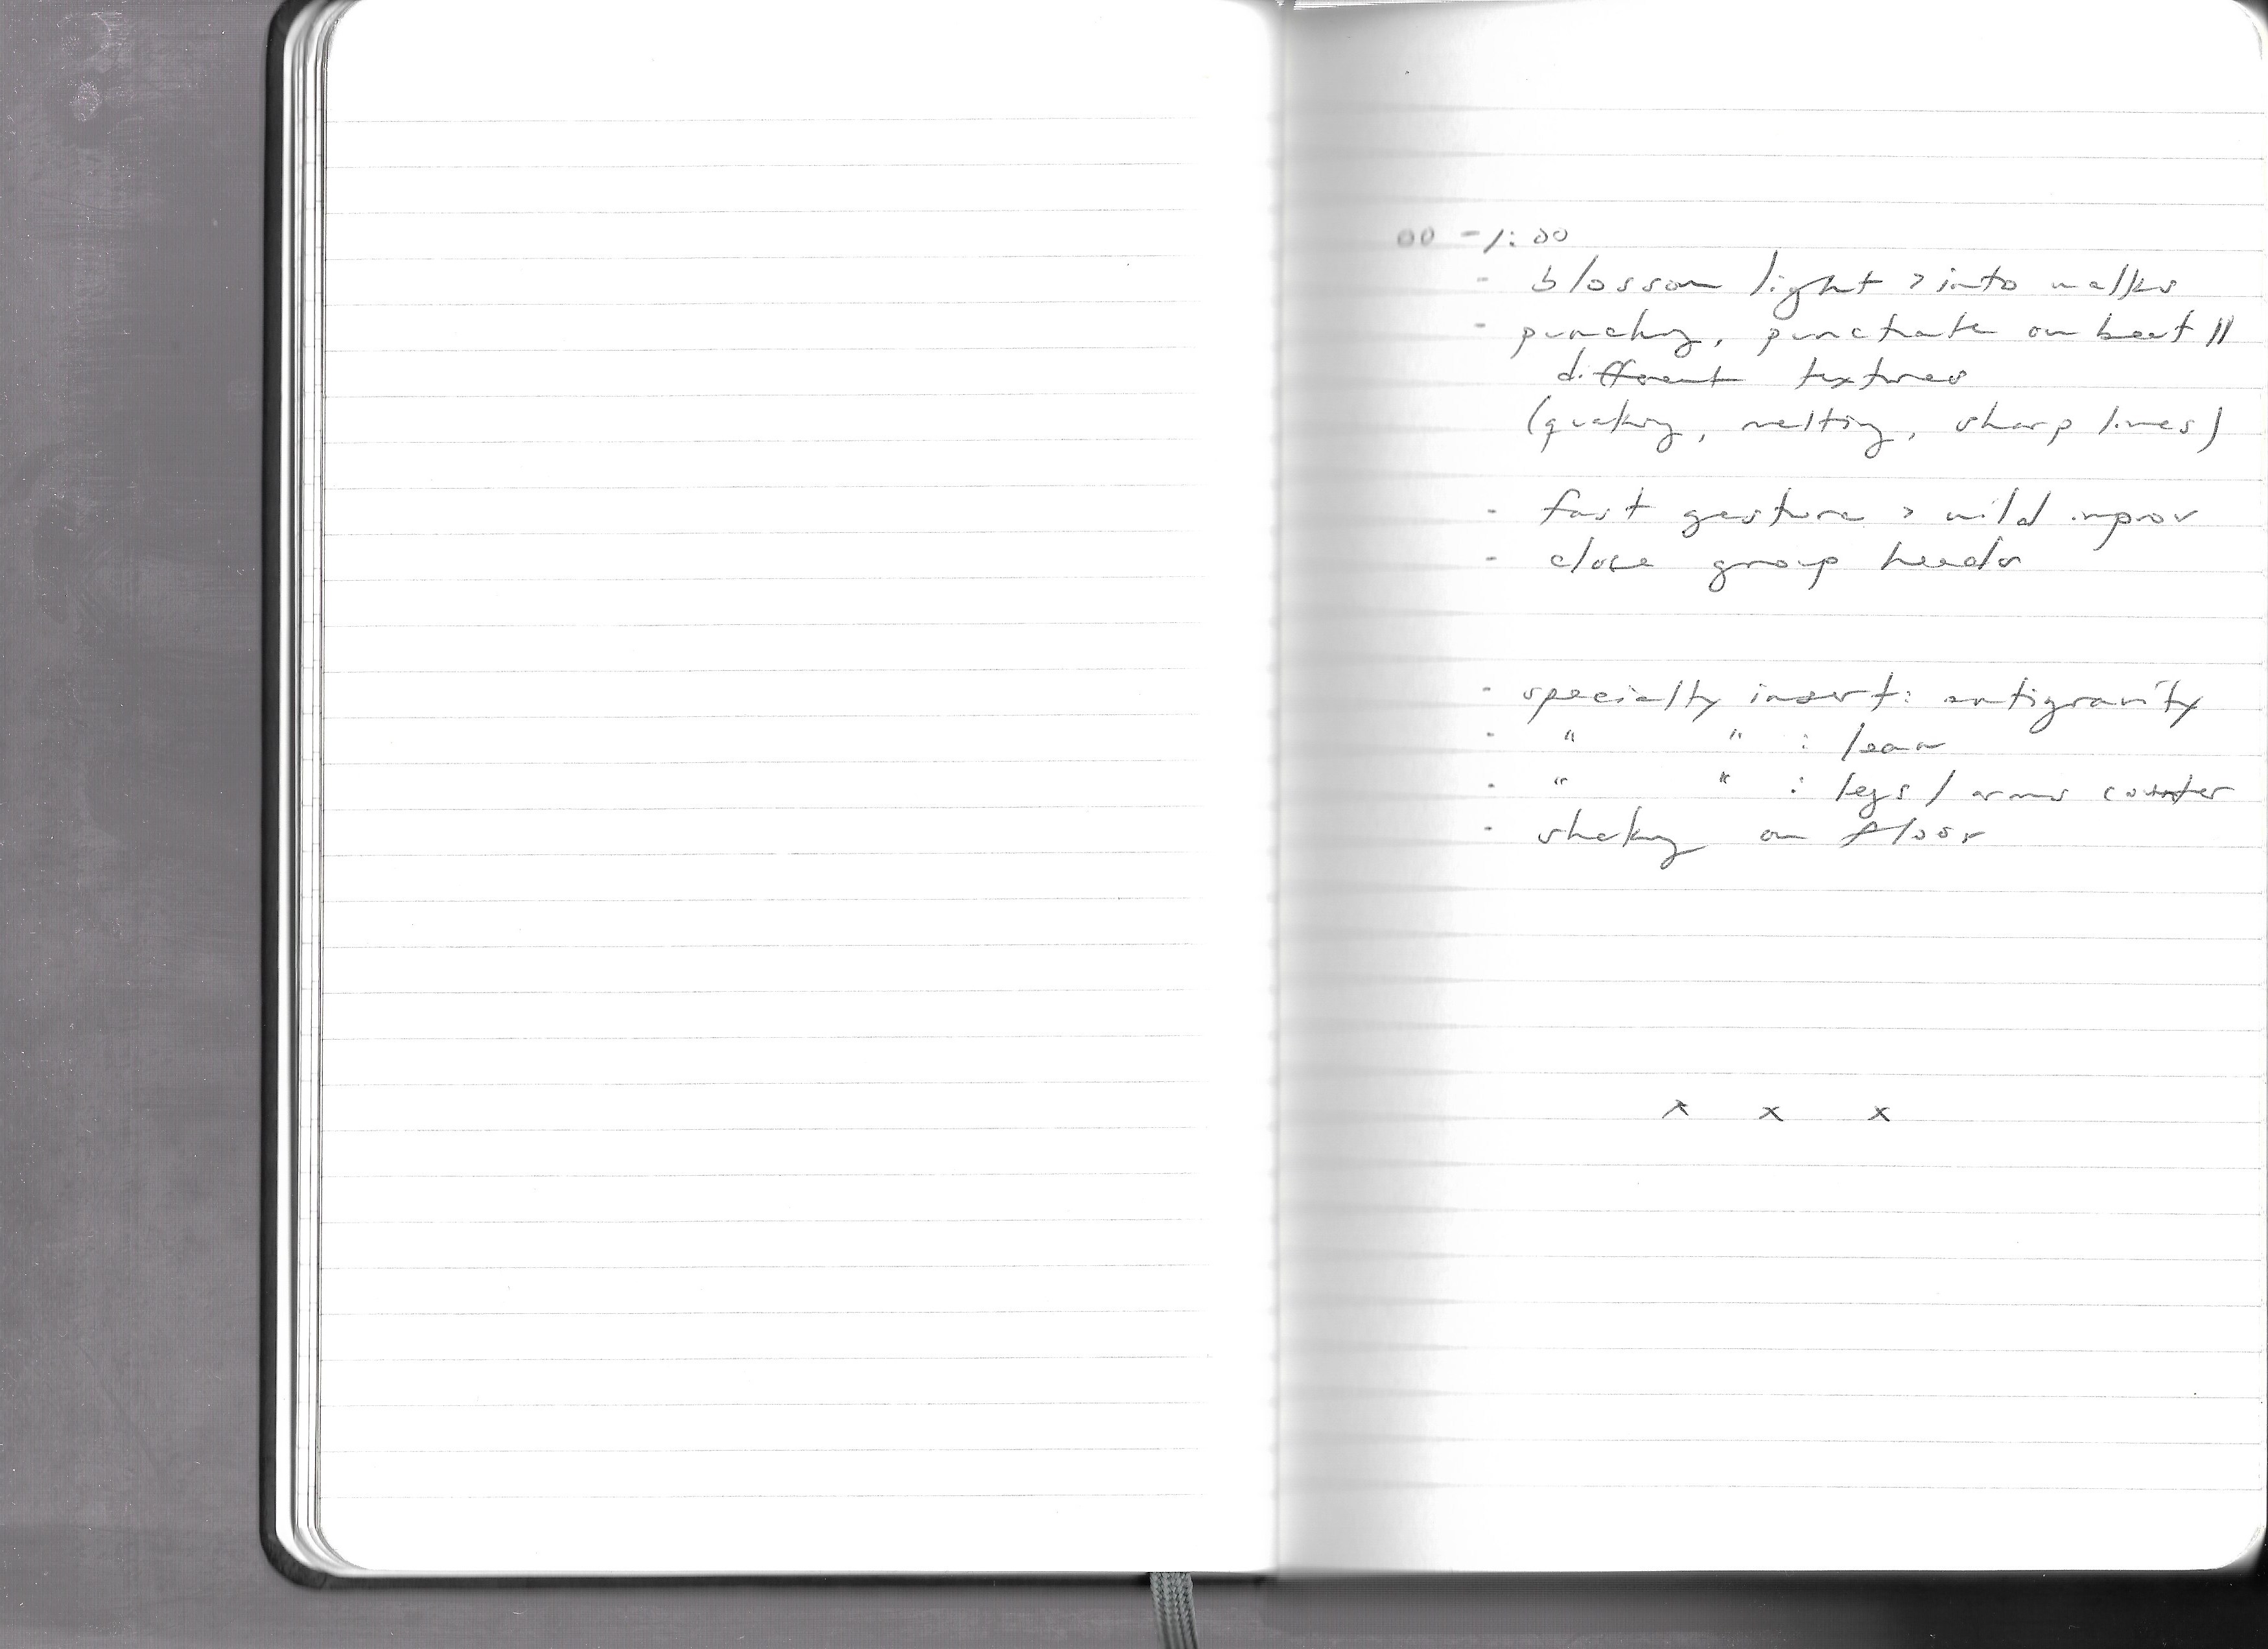 00 - 1:00
- blossom light > into walks
- punching, punctuate on beat //
different textures
(quaking, melting, sharp lines)
- fast gesture > wild improv
- close group header
- specialty insert: antigravity
- " " : lean
- " " : legs / arms counter
- shaking on floor
x x x